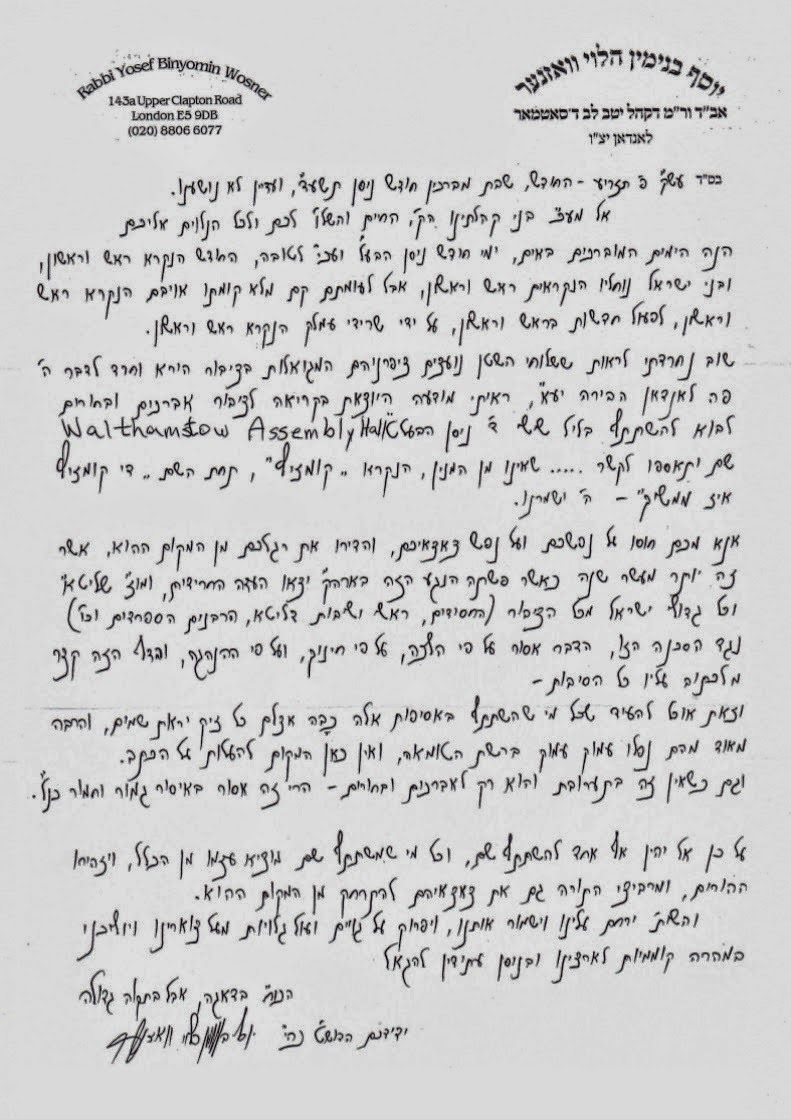 Rabbi Yosef Binyomin Wosner
143a Upper Clapton Road
London E5 9DB
(020) 8806 6077
יוסף בנימין הלוי וואזנער
אב"ד ור"מ דקהל יטב לב ד'סאטמאר
לאנדאן יצ"ו
בס"ד עש"ק פ' תזריע - החודש, שבת מברכין חודש ניסן תשע"ד, ועדיין לא נושענו.
אל מע"כ בני קהלתינו הק', החיים והשלו' לכם ולכל הנלוים אליכם
הנה הימים המבורכים באים, ימי חודש ניסן הבעל"ט ועכי"ל לטובה, החודש הנקרא ראש וראשון,
ובני ישראל נוחליו הנקראים ראש וראשון, אבל לעומתם קם מלא קומתו אויבם הנקרא ראש
וראשון, לפעול חדשות בראש וראשון, על ידי שרידי עמלק הנקרא ראש וראשון.
שוב נחרדתי לראות ששלוחי השטן נועצים ציפרניהם המגואלות בציבור הירא וחרד לדבר ה'
פה לאנדאן הבירה יע"א, ראיתי מודעה היוצאת בקריאה לציבור אברכים ובחורים
לבוא להשתתף בליל ששי ד' ניסן הבעל"ט Walthamstow Assembly Hall
שם יתאספו לקשר ..... שאינו מן המנין, הנקרא ,,קומזיץ", תחת השם ,,די קומזיץ
איז ממשיך" - ה' ישמרנו.
אנא מכם חוסו על נפשכם ועל נפש צאצאיכם, והדירו את רגלכם מן המקום ההוא, אשר
זה יותר מעשר שנה כאשר פשתה הנגע הזה בארה"ק יצאו העדה החרדית, ומו"צ שליט"א
וכל גדולי ישראל מכל הציבור (החסידים, ראשי ישיבות דליטא, הרבנים הספרדים וכו')
נגד הסכנה הזו, הדבר אסור על פי הלכה, על פי חינוך, ועל פי ההנהגה, והדף הזה קצר
מלכתוב עליו כל הסיבות -
וזאת אוכל להעיד שכל מי שהשתתף באסיפות אלה כָבָה אצלם כל זיק יראת שמים, והרבה
מאוד מהם נפלו עמוק עמוק ברשת הטומאה, ואין כאן המקום להעלות על הכתב.
וגם כשאין זה בתערובת והוא רק לאברכים ובחורים - הרי זה אסור באיסור גמור וחמור כנ"ל.
על כן אל יהין אף אחד להשתתף שם, וכל מי שמשתתף שם מוציא עצמו מן הכלל, ויזהירו
ההורים, ומרביצי התורה גם את צאצאיהם להתרחק מן המקום ההוא.
והשי"ת ירחם עלינו וישמור אותנו, ויפרוק על גויים ועול גלויות מעל צוארינו ויוליכני
במהרה קוממיות לארצינו ובניסן עתידין להגאל
הכות' בדאגה, אבל בתקוה גדולה
ידידכם הדושט"ט נה"י יוסף בנימין הלוי וואזנער